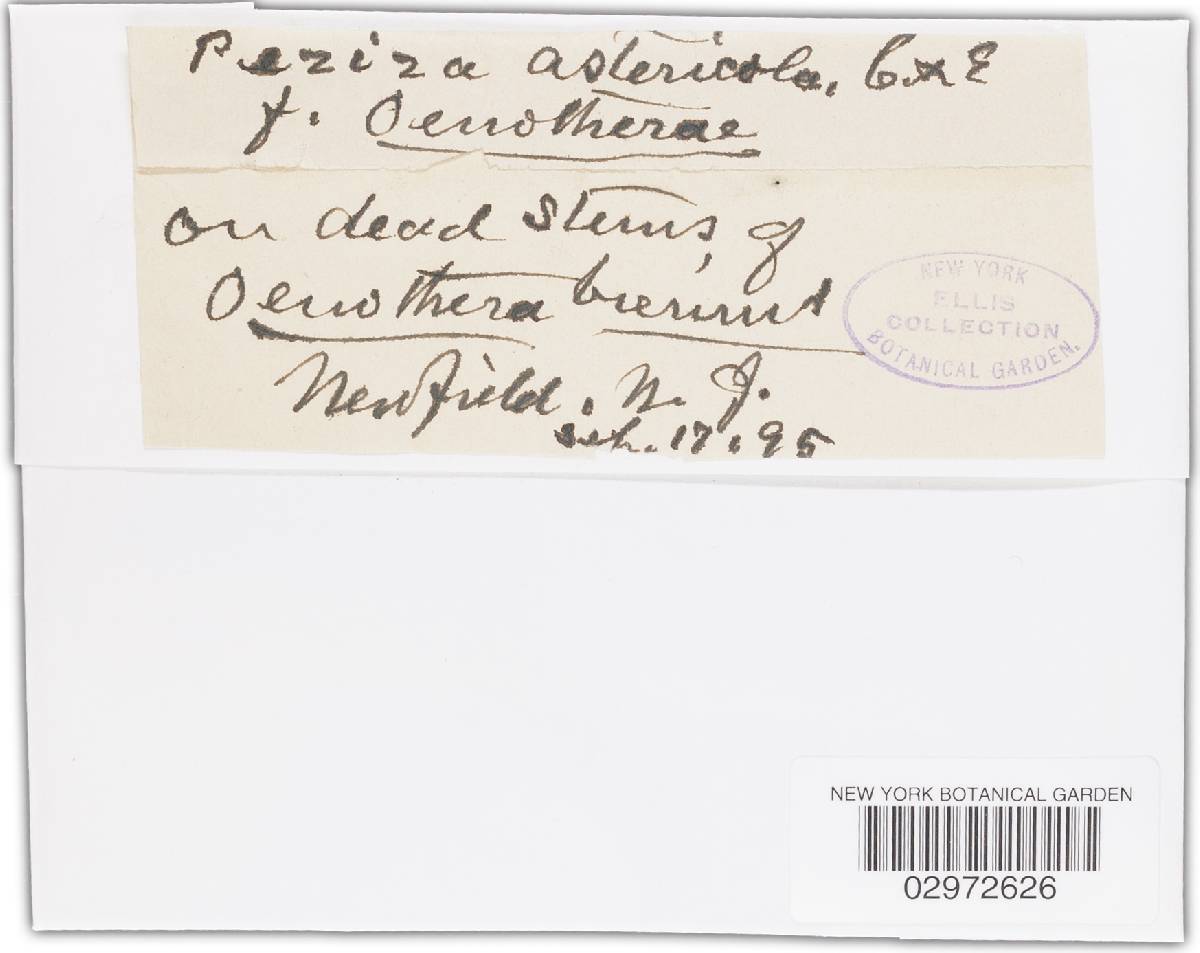 Peziza astericola, C & E
f. Oenotherae
on dead stems, of
Oenothera biennis
Newfield, N. J.
Sep. 17, 95
NEW YORK
ELLIS
COLLECTION
BOTANICAL GARDEN.
NEW YORK BOTANICAL GARDEN
02972626